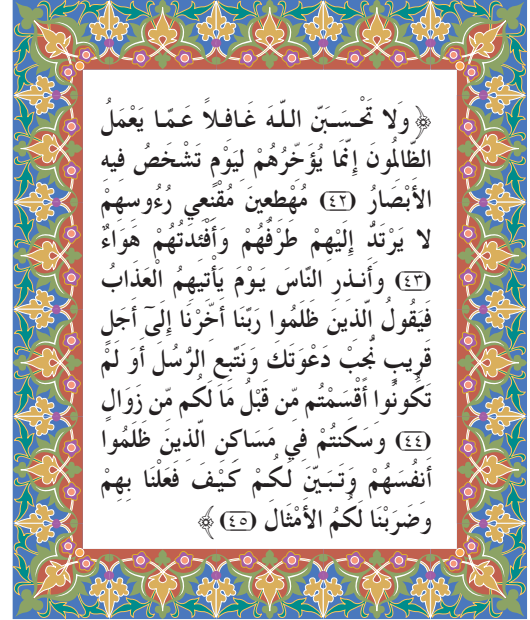 ﴿ وَلا تَحْسَبَنَّ اللَّهَ غَافِلاً عَمَّا يَعْمَلُ
الظَّالِمُونَ إِنَّمَا يُؤَخِّرُهُمْ لِيَوْمٍ تَشْخَصُ فِيهِ
الأَبْصَارُ (٤٢) مُهْطِعِينَ مُقْنِعِي رُءُوسِهِمْ
لا يَرْتَدُّ إِلَيْهِمْ طَرْفُهُمْ وَأَفْئِدَتُهُمْ هَوَاءٌ
(٤٣) وَأَنذِرِ النَّاسَ يَوْمَ يَأْتِيهِمُ الْعَذَابُ
فَيَقُولُ الَّذِينَ ظَلَمُوا رَبَّنَا أَخِّرْنَا إِلَىٰٓ أَجَلٍ
قَرِيبٍ نُّجِبْ دَعْوَتَكَ وَنَتَّبِعِ الرُّسُلَ أَوَ لَمْ
تَكُونُوا أَقْسَمْتُم مِّن قَبْلُ مَا لَكُم مِّن زَوَالٍ
(٤٤) وَسَكَنتُمْ فِي مَسَاكِنِ الَّذِينَ ظَلَمُوا
أَنفُسَهُمْ وَتَبَيَّنَ لَكُمْ كَيْفَ فَعَلْنَا بِهِمْ
وَضَرَبْنَا لَكُمُ الأَمْثَالَ (٤٥) ﴾